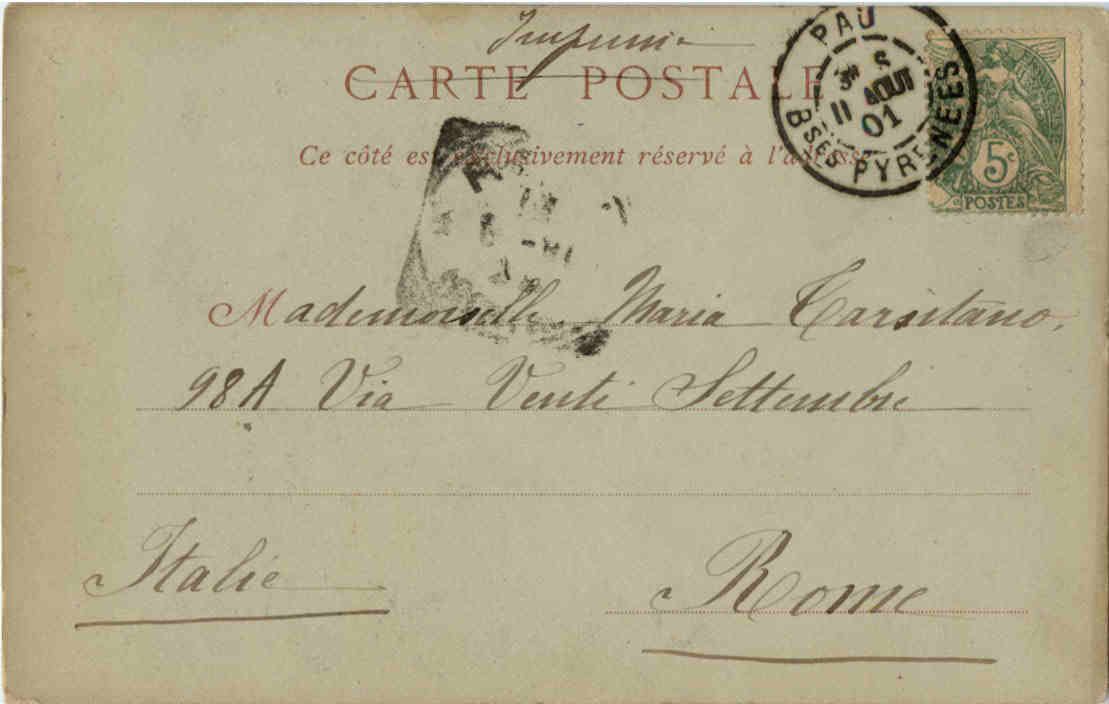 Imprimé
CARTE POSTALE
Ce côté est exclusivement réservé à l'adresse
PAU
11 AOUT
01
Bses PYRENEES
5c
POSTES
Mademoiselle Maria Tarsitano,
98A Via Venti Settembre
Italie
Rome